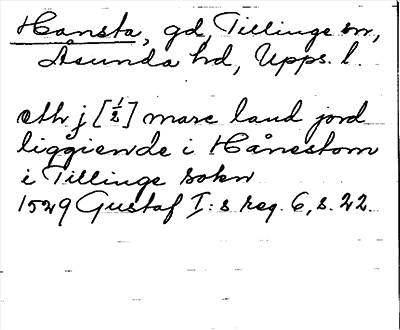 Hånsta, gd, Tillinge sn,
Åsunda hd, Upps. l.
eth j [½] marc land jord
liggiende i Hånestom
i Tillinge sokn
1529 Gustaf I:s reg. 6, s. 22.